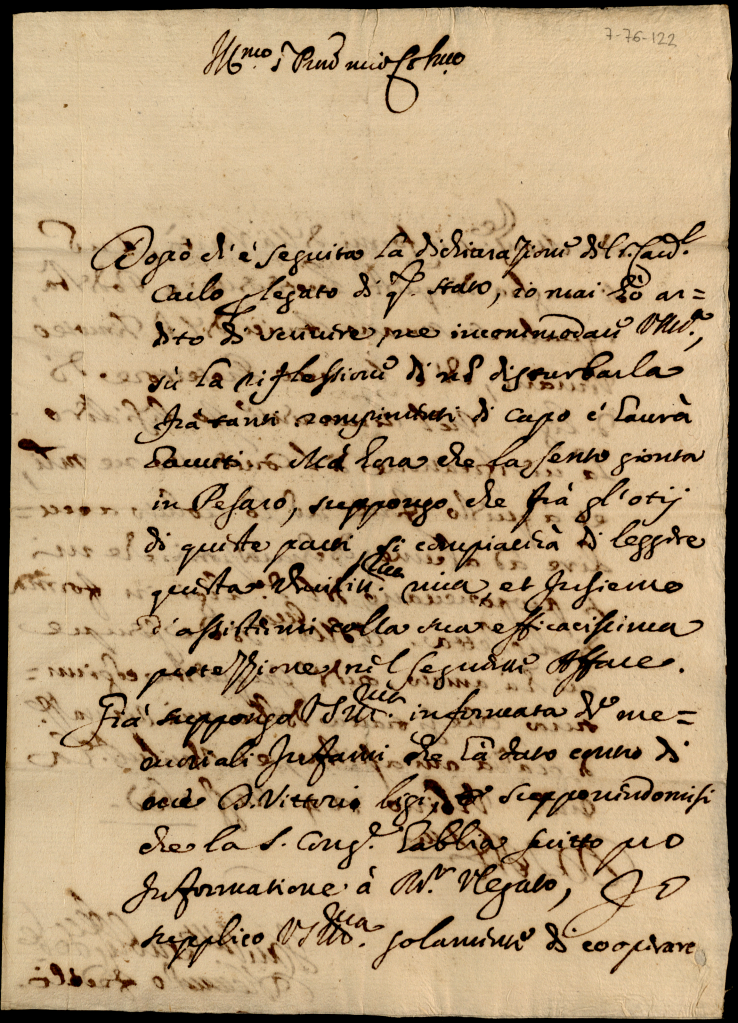 7-76-122
Ill.mo Sig.r Pron mio Col.mo
Dopò ch'è seguita la dichiarazione del S. Card.l
Carlo p legato di q.o stato, io mai hò ar=
dito di venire, ne incommodare VSIll.ma,
sù la riflessione di nō disturbarla
frà tanti rompimenti di capo ch'haurà
hauuti. Mà hora che la sento gionta
in Pesaro, suppongo, che frà gl'otij
di queste parti, si compiacerà di leggere
questa humiliss.ma mia, et insieme
d'assistermi colla sua efficacissima
protezzione nel seguente affare.
Già suppongo VSIll.ma informata de me=
moriali infami che hà dato contro di
me D. Vittorio ligi, e supponendomisi
che la S. Cong.e habbia scritto pro
informatione à M.r Vlegato, Io
supplico VSIll.ma solamente di cooperare